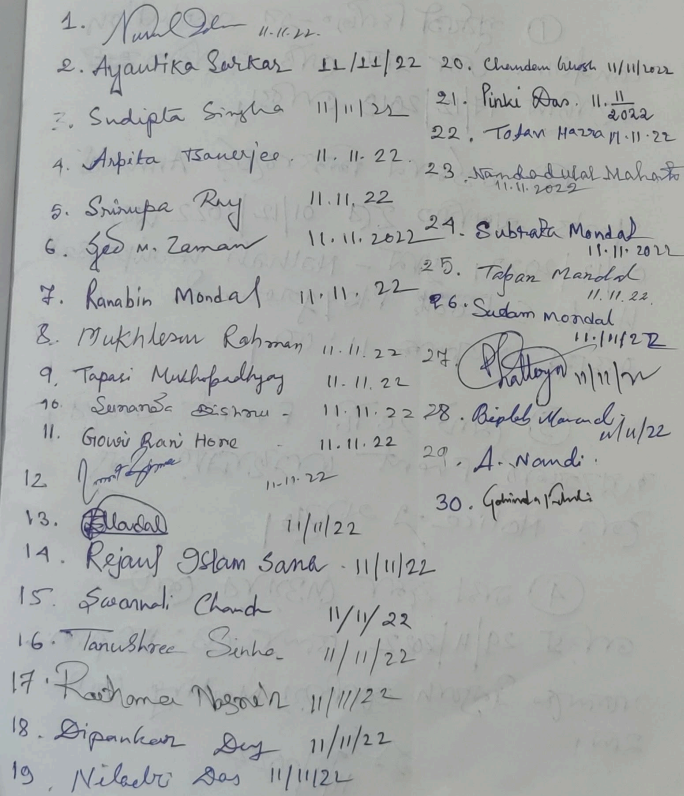 1. 11.11.22.
2. Ayantika Sarkar 11/11/22
3. Sudipta Singha 11/11/22
4. Arpita Banerjee. 11.11.22.
5. Srirupa Roy 11.11.22
6. Ged M. Zaman 11.11.2022
7. Ranabir Mondal 11.11.22
8. Mukhlesur Rahman 11.11.22
9. Tapasi Mukhopadhyay 11.11.22
10. Sunanda Bishnu - 11.11.22
11. Gouri Rani Hore - 11.11.22
12 11.11.22
13. 11/11/22
14. Rejaul Islam Sana. 11/11/22
15. Swarnali Chand 11/11/22
16. Tanushree Sinha 11/11/22
17. 11/11/22
18. Dipankar Dey 11/11/22
19. Niladri Das 11/11/22
20. Chandan Ghosh 11/11/2022
21. Pinki Das. 11.11
2022
22. Tofan Hazra 11.11.22
23. Nandadulal Mahato
11.11.2022
24. Subrata Mondal
11.11.2022
25. Tapan Mandal
11.11.22.
26. Sudam Mondal
11/11/22
27. 11/11/22
28. Biplab 11/11/22
29. A. Nandi.
30. Gobinda